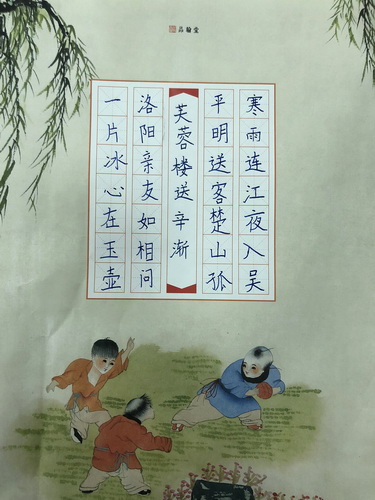 品翰堂
寒雨连江夜入吴
平明送客楚山孤
芙蓉楼送辛渐
洛阳亲友如相问
一片冰心在玉壶